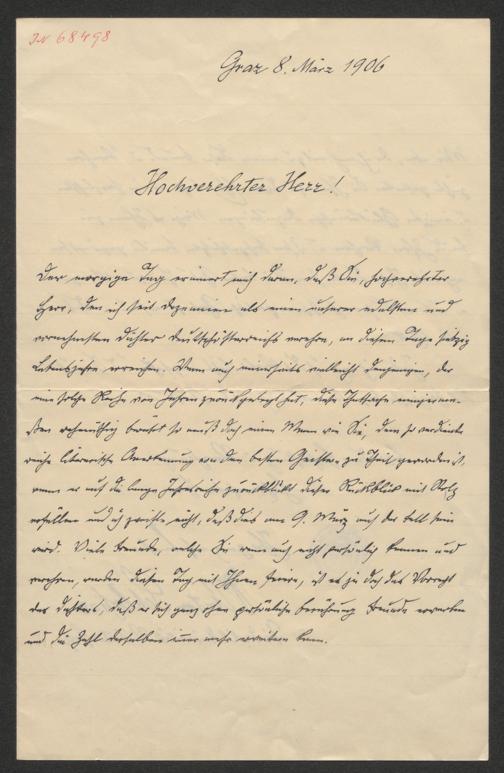 IN 68498
Graz 8. März 1906
Hochverehrter Herr!
Der morgige Tag erinnert mich daran, daß Sie, hochverehrter
Herr, den ich seit Dezennien als einen unserer edelsten und
vornehmsten Dichter Deutschösterreichs verehre, an diesem Tage siebzig
Lebensjahre erreichen. Wenn auch einerseits vielleicht denjenigen, der
eine solche Reihe von Jahren zurückgelegt hat, diese Thatsache einigerma-
ßen wehmüthig berührt so muß doch einen Mann wie Sie, dem so verdiente
reiche literarische Anerkennung von den besten Geistern zu Theil geworden ist,
wenn er auf die lange Jahresreihe zurückblickt dieser Rückblick mit Stolz
erfüllen und ich zweifle nicht, daß dies am 9. März auch der Fall sein
wird. Viele Freunde, welche Sie wenn auch nicht persönlich kennen und
verehren, werden diesen Tag mit Ihnen feiern, ist es ja doch das Vorrecht
des Dichters, daß er sich ganz ohne persönliche Berührung Freunde erwerben
und die Zahl derselben immer mehr erweitern kann.